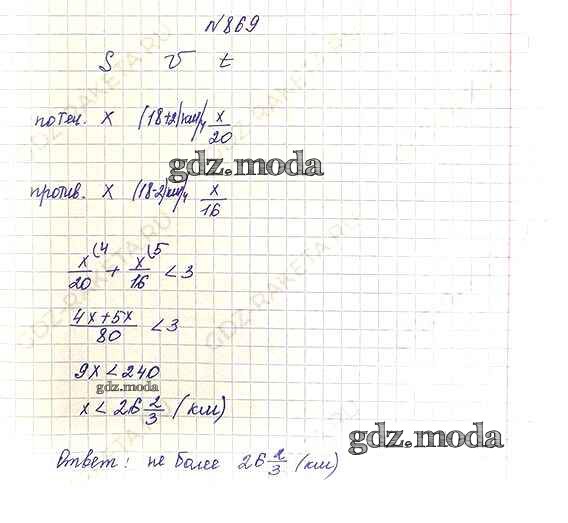 №869
S V t
по теч. x (18+2)км/ч x/20
gdz.moda
против. x (18-2)км/ч x/16
x/20 (4 + x/16 (5 < 3
4x+5x/80 < 3
9x < 240
gdz.moda
x < 26 2/3 (км)
gdz.moda
Ответ: не более 26 2/3 (км)
GDZ-RAKETA.RU
GDZ-RAKETA.RU
GDZ-RAKETA.RU